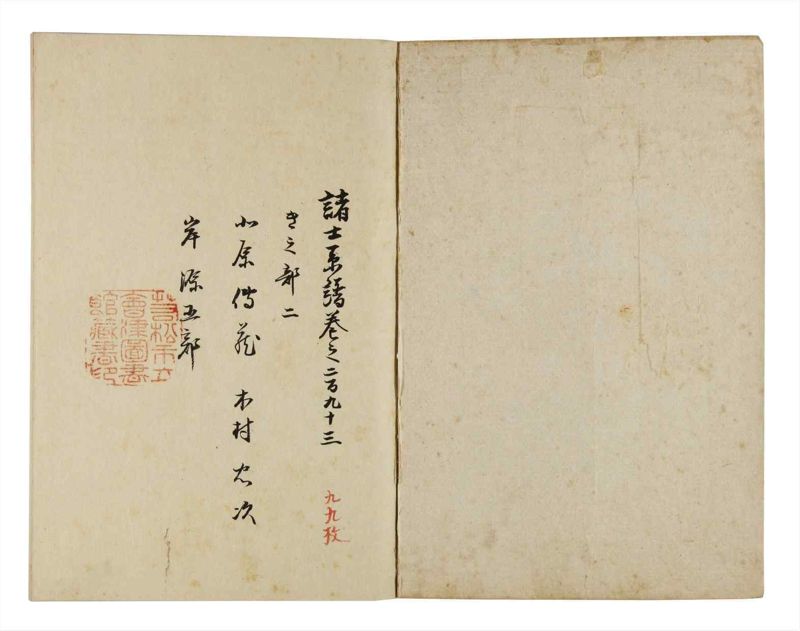 諸士系譜巻之二百九十三
き之部二
北原傳蔵 木村忠次
岸源五郎
九九枚
若松市立
會津圖書
館藏書印